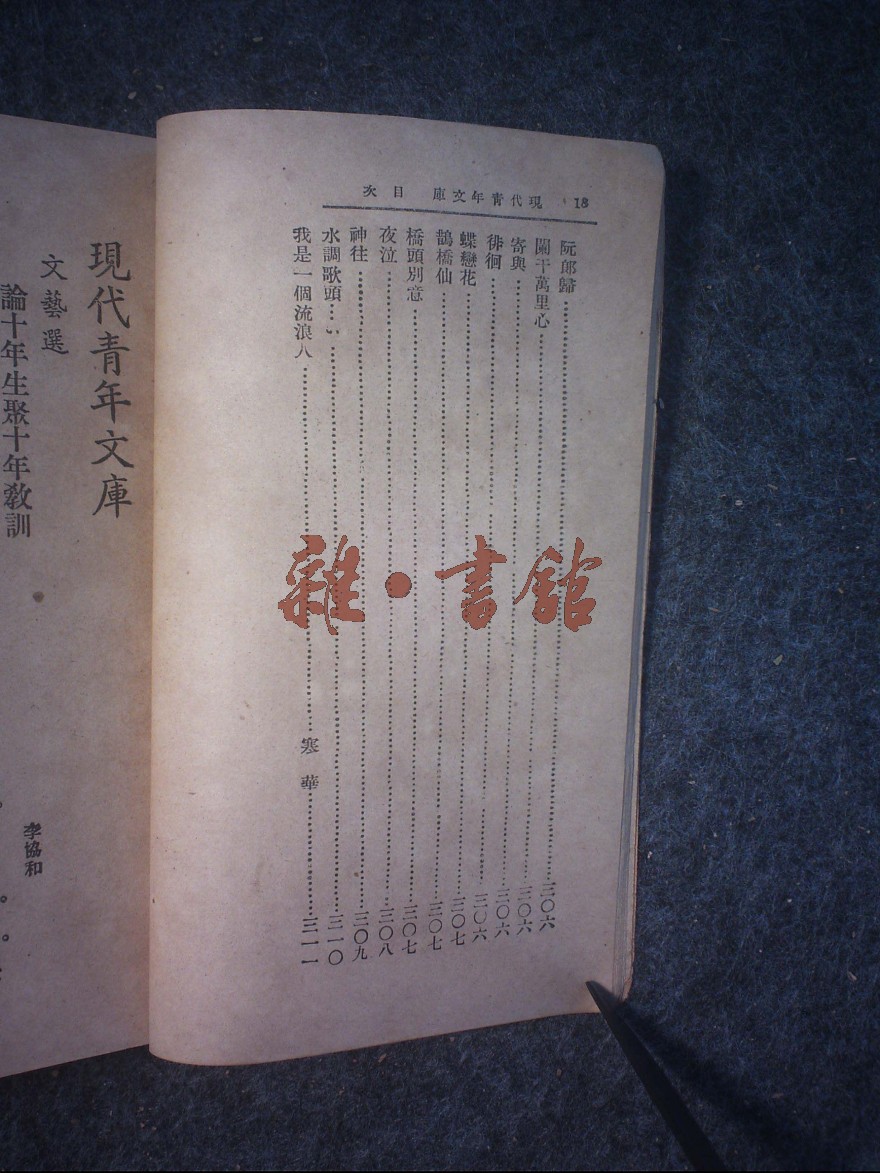 18 現代青年文庫 目次
阮郎歸……三〇六
闌干萬里心……三〇六
寄與……三〇六
徘徊……三〇六
蝶戀花……三〇七
鵲橋仙……三〇七
橋頭別意……三〇七
夜泣……三〇八
神往……三〇九
水調歌頭……三一〇
我是一個流浪人……寒華……三一一
現代青年文庫
文藝選
論十年生聚十年教訓
李協和
雜·書館